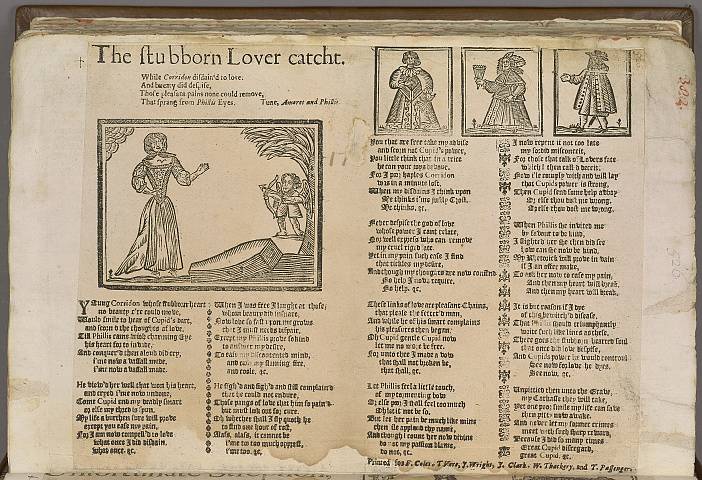 The stubborn Lover catcht.
While Corridon disdain'd to love.
And beauty did despise,
Those pleasant pains none could remove,
That sprang from Phillis Eyes. Tune, Amaret and Phillis
Young Corridon whose stubborn heart
no beauty e're could move,
Would smile to hear of Cupid's dart,
and scorn'd the thoughts of love,
Till Phillis came with charming Eye
his heart for to subdue,
And conquer'd then aloud did cry,
I'me now a vassal made,
I'me now a vassal made.
He view'd her well that won his heart,
and cryed I'me now undone,
Come Cupid end my deadly smart
or else my choice is
My life a burthen sure will prove
except you ease my pain,
For I am now compell'd to love
what once I did disdain.
what once, &c.
When I was free I laught at those,
whom beauty did insnare,
Now love so fast upon me grows
that I must needs despair,
Except my Phillis prove so kind
to answer my desire,
To ease my discontented mind,
and cool my flaming fire,
and coole, &c.
He sigh'd and sigh'd and still complain'd
that he could not endure,
Those pangs of love that him so pain'd
but must look out for cure.
Oh whether shall I fly quoth he
to find one hour of rest,
Alass, alass, it cannot be
I'me too too much opprest,
I'me too, &c.
You that are free take my advise
and scorn not Cupid's power,
You little think that in a trice
he can your joys devour,
For I poor hapless Corridon
was in a minute lost,
When my disdains I think upon
Me thinks I'me justly Crost.
Me thinks, &c.
Never despise the god of love
whose power I cant relate,
Nor well express who can remove
my cruel rigid fate.
Yet in my pain such ease I find
that tickles my desire,
And though my thoughts are now confin'd
No help I now require,
No help, &c.
These links of love are pleasant Chains,
that please the fetter'd man,
And while he of his smart complains
his pleasure then began;
Oh Cupid gentle Cupid now
let me no more be free,
For unto thee I made a vow
that shall not broken be,
that shall, &c.
Let Phillis feel a little touch,
of my tormenting bow
Or else poor I shall feel too much
Oh let it not be so.
But let her pain be much like mine
then she approves thy name,
And though I count her now divine
do not my passion blame,
do not, &c.
I now repent it not too late
my former misconceit,
For those that talk of Lovers fate
which I then call'd deceit;
Now I'le comply with and will say
that Cupids power is strong,
Then Cupid send some help away
Or else thou dost me wrong.
Or else thou dost me wrong.
When Phillis she invited me
by favour to be kind,
I slighted her she then did see
Low can she now be kind,
My Rhetorick will prove in vain
if I an offer make,
To ask her now to ease my pain,
And then my heart will break.
And then my heart will break.
It is but reason if I dye
of this by which I please,
That Phillis should triumphantly
write such like lines as these.
There goes the stubborn hearted soul
that once did love despise,
And Cupids power he would controul
See now for love he dyes.
See now, &c.
Unpitied then unto the Grave,
my Carkass they will take,
Yet one poor smile my life can save
then pitty now awake.
And never let my former crimes
meet with such sharp reward,
Because I did so many times
Great Cupid disregard,
Great Cupid, &c.
Printed for F. Coles, T. Vere, J. Wright, J. Clark, W. Thackery, and T. Passenger.